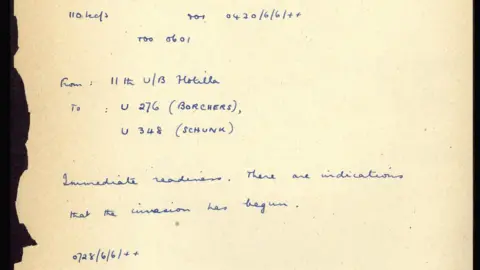 110 kc/s TOI 0420/6/6/++
TOO 0601
From : 11th U/B Flotilla
To : U 276 (BORCHERS),
U 348 (SCHUNK)
Immediate readiness. There are indications
that the invasion has begun.
0728/6/6/++